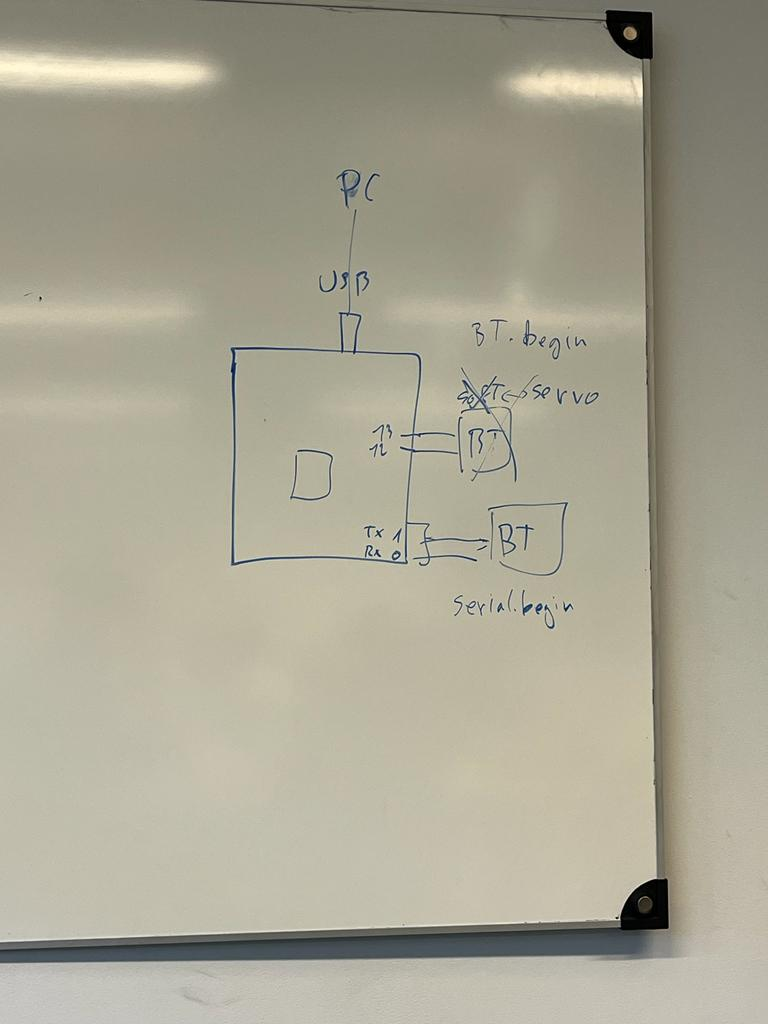 PC
USB
BT.begin
Soft servo
13
12
BT
Tx 1
Rx 0
BT
serial.begin